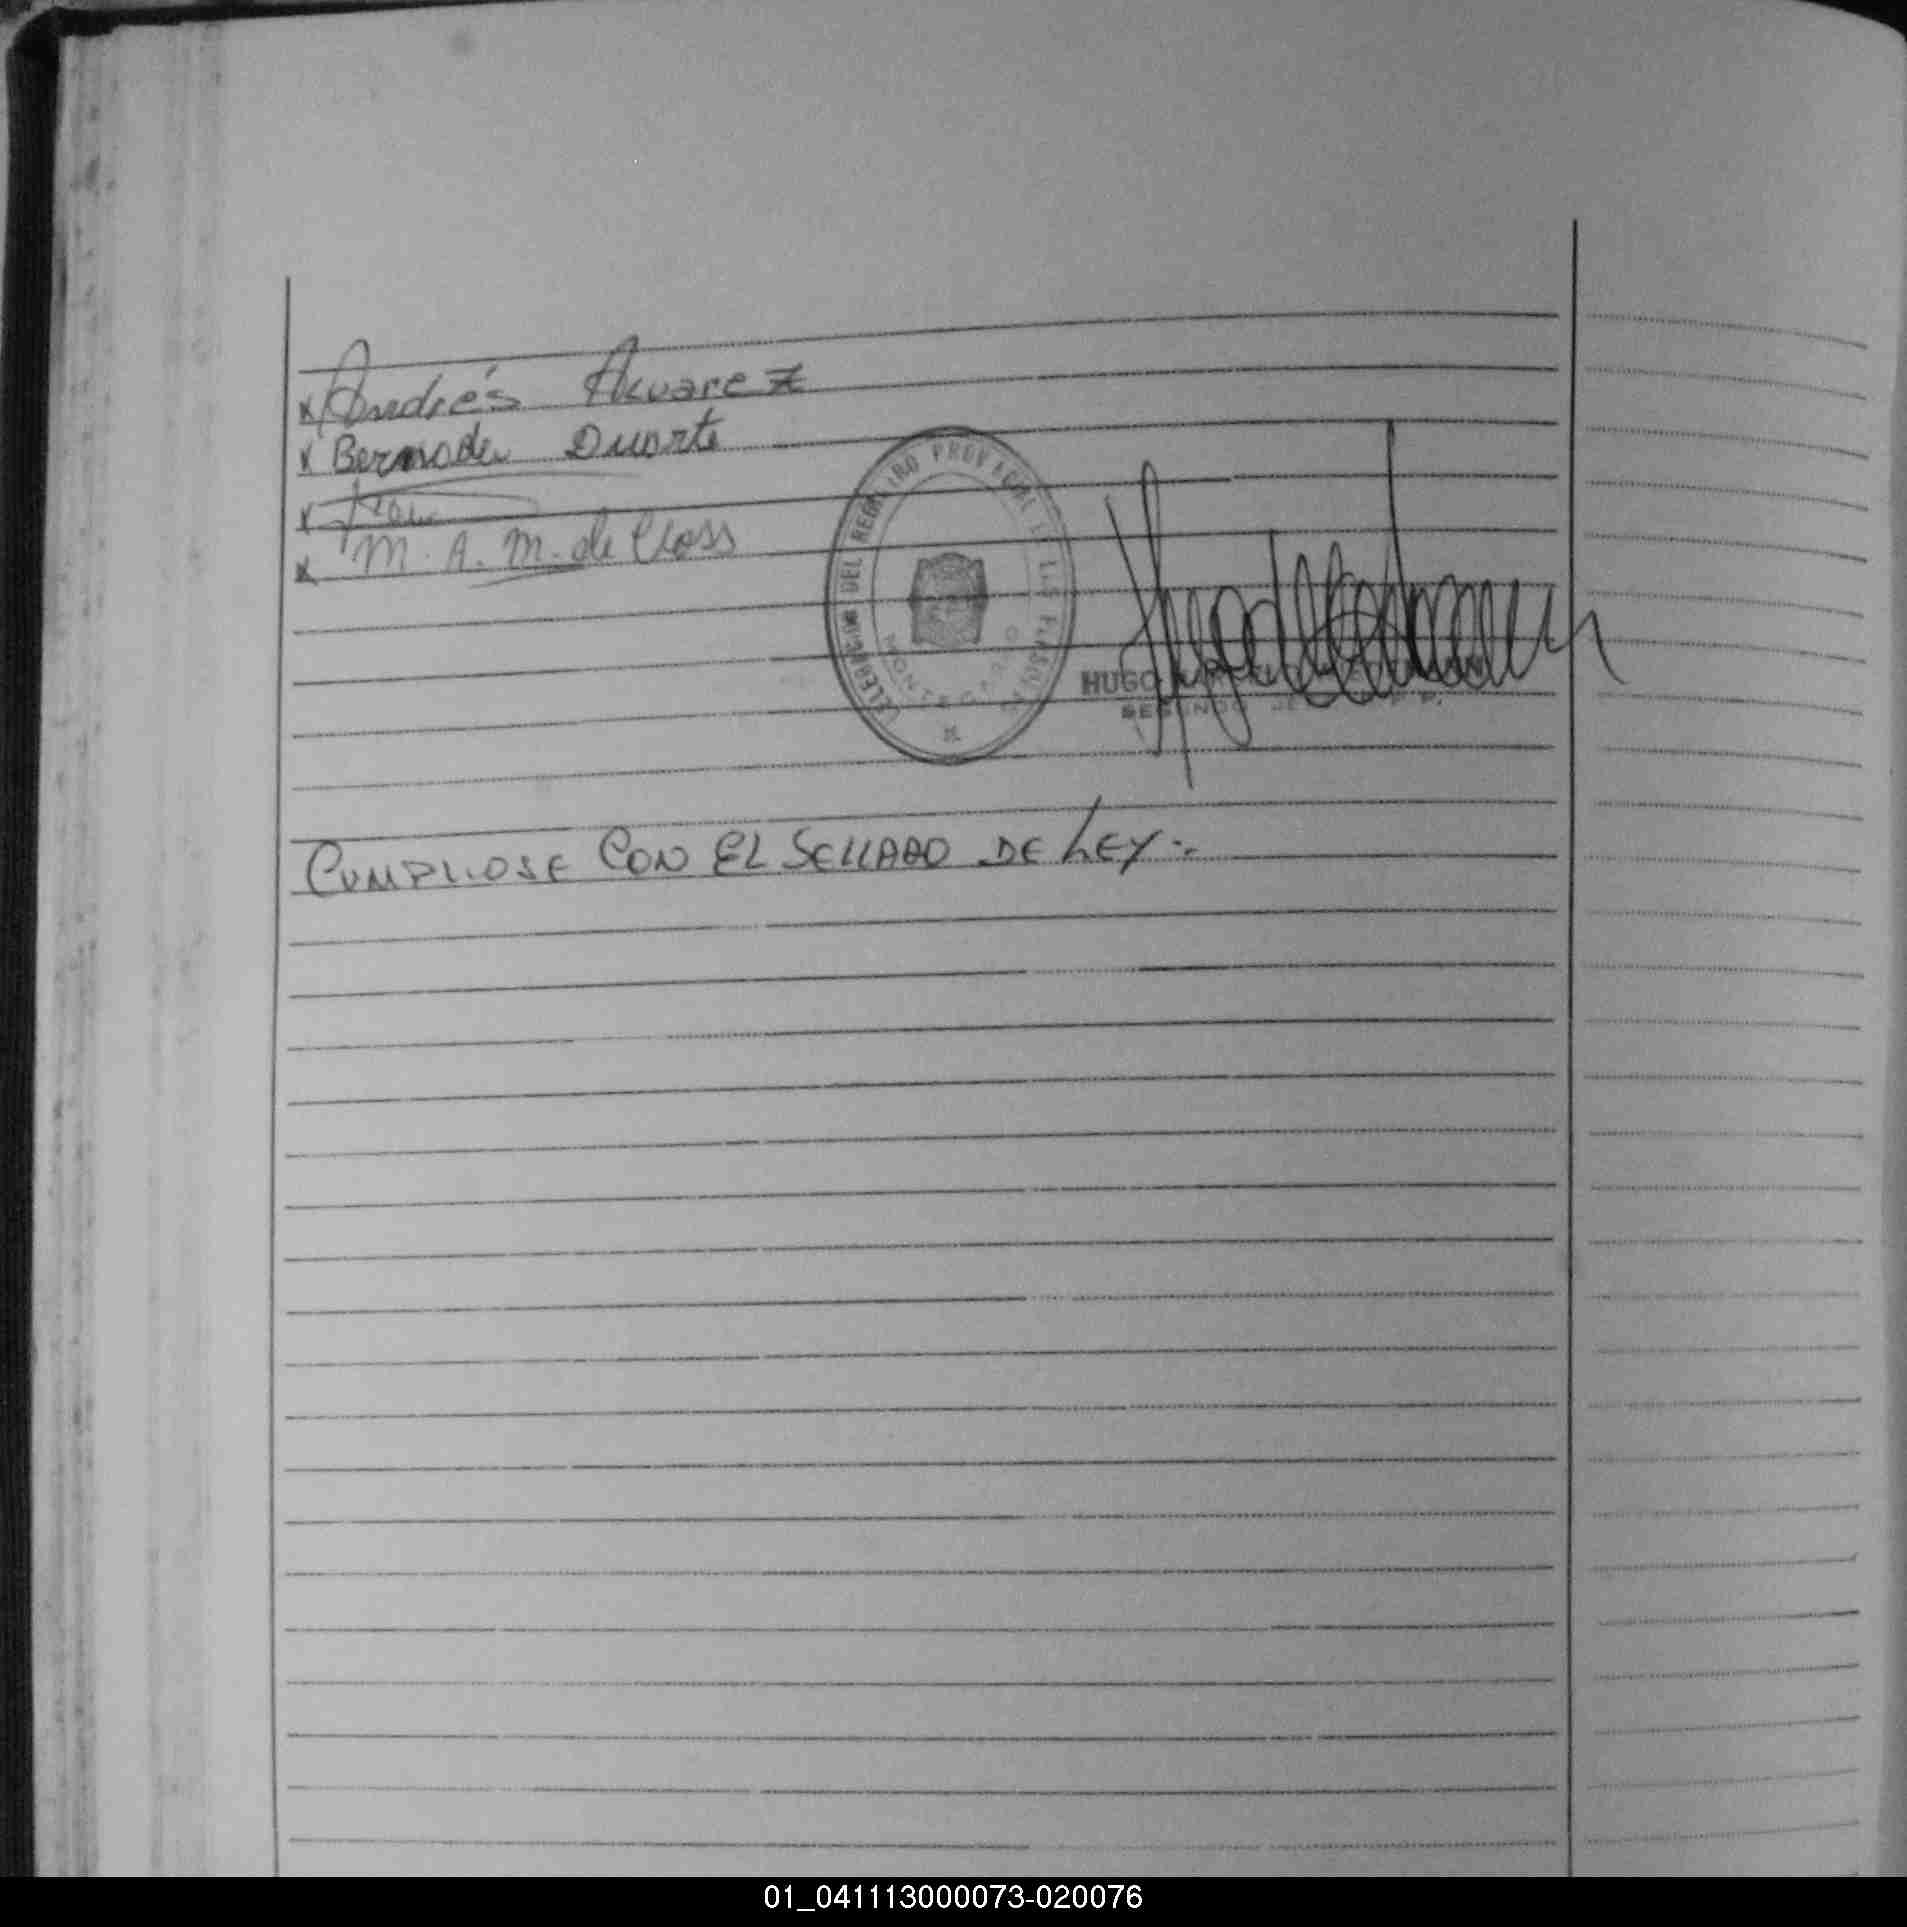 x Andrés Alvarez
x Bernarde Duarte
x
x M. A. M. de Cross
DELEGACION DEL REGISTRO PROVINCIAL DE LAS PERSONAS
MONTECARLO
HUGO
SEGUNDO JEFE R. P. P.
CUMPLIOSE CON EL SELLADO DE LEY.-
01_041113000073-020076